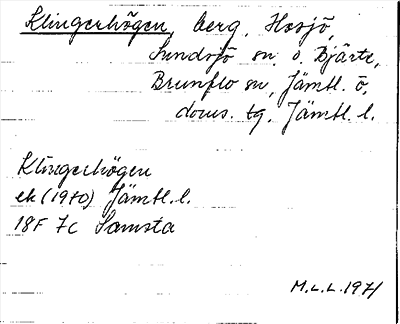 Klingerhögen, berg, Hosjö,
Sundsjö sn, o. Bjärte,
Brunflo sn, Jämtl. ö.
doms. tg. Jämtl. l.
Klingerhögen
ek (1970) Jämtl. l.
18F 7c Samsta
M.L.L. 1971